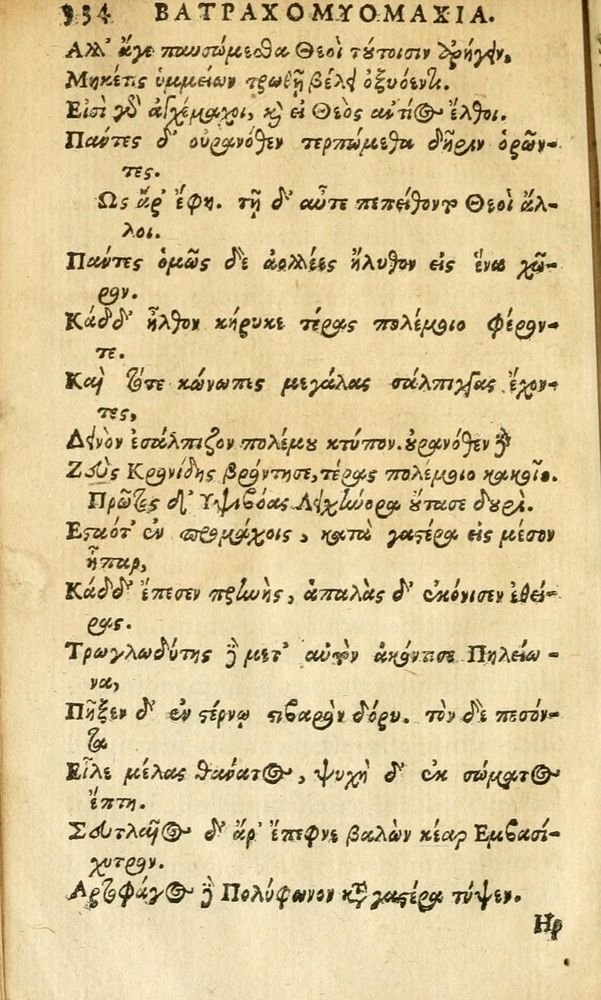 334 ΒΑΤΡΑΧΟΜΥΟΜΑΧΙΑ.
Ἀλλ' ἄγε παυσώμεσθα Θεοὶ τούτοισιν ἀρήγειν,
Μηκέτις ὑμμείων τρωθῇ βέλει ὀξυόεντι.
Εἰσὶ γὰρ ἀγχέμαχοι, καὶ εἰ Θεὸς αὐτίος ἔλθοι.
Πάντες δ' οὐρανόθεν τερπώμεθα δῆριν ὁρῶν-
τες.
Ως ἄρ' ἔφη. τῇ δ' αὖτε πεπείθοντο Θεοὶ ἄλ-
λοι.
Πάντες ὁμῶς δὲ ἀολλέες ἤλυθον εἰς ἕνα χῶ-
ρον.
Κάδδ' ἦλθον κήρυκε τέρας πολέμοιο φέρον-
τε.
Καὶ τότε κώνωπις μεγάλας σάλπιγγας ἔχον-
τες,
Δεινὸν ἐσάλπιζον πολέμου κτύπον. οὐρανόθεν δὲ
Ζεὺς Κρονίδης βρόντησε, τέρας πολέμοιο κακοῖο.
Πρῶτος δ' Υψιβόας Λειχήνορα οὔτασε δουρί.
Εσταότ' ἐν προμάχοις, κατὰ γαστέρα εἰς μέσον
ἧπαρ,
Κάδδ' ἔπεσεν πρηνὴς, ἁπαλὰς δ' ἐκόνισεν ἐθεί-
ρας.
Τρωγλωδύτης δὲ μετ' αὐτὸν ἀκόντισε Πηλείω-
να,
Πῆξεν δ' ἐν στέρνῳ στιβαρὸν δόρυ. τὸν δὲ πεσόν-
τα
Εἷλε μέλας θάνατος, ψυχὴ δ' ἐκ σώματος
ἔπτη.
Σευτλαῖος δ' ἄρ' ἔπεφνε βαλὼν κέαρ Εμβασί-
χυτρον.
Αρτοφάγος δὲ Πολύφωνον κατὰ γαστέρα τύψεν.
Ηρ